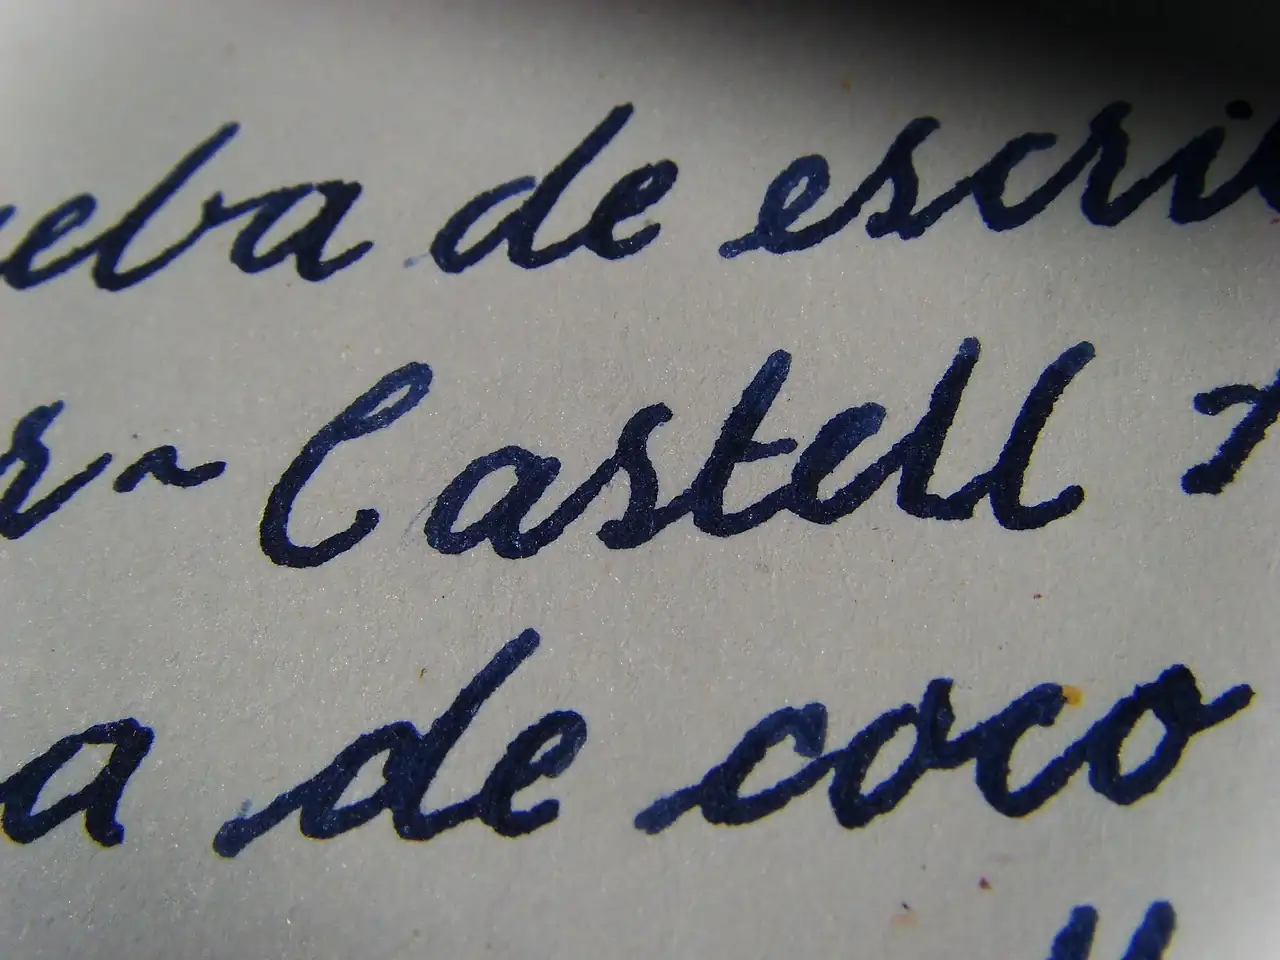 ueba de escri
r-Castell
a de coco